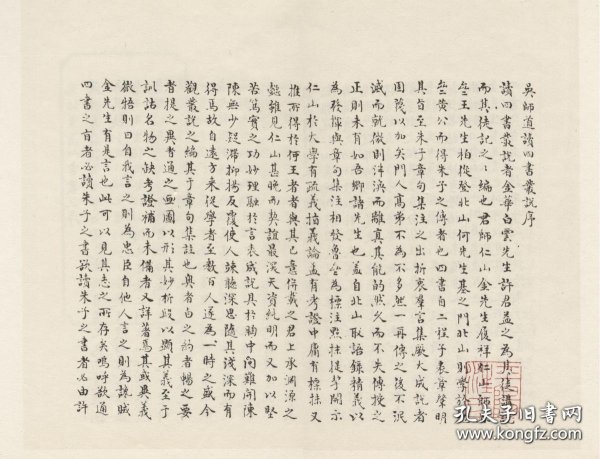 吳師道讀四書叢說序
讀四書叢說者金華白雲先生許君益之為其徒講說
而其徒記之之編也君師仁山金先生履祥仁山師
魯王先生柏從登北山何先生基之門北山則學於
勉黃公而得朱子之傳者也四書自二程子表章肇明
其旨至朱子章句集注之出折衷羣言集厥大成說者
固蔑以加矣門人高弟不為不多然一再傳之後不泯
滅而就微則泮渙而離真其能的然久而不失傳授之
正則未有如吾鄉諸先生也蓋自北山取語錄精義以
為發揮與章句集注相發魯公為標注點抹提挈開示
仁山於大學有疏義指義論孟有考證中庸有標抹又
推所得於何王者與其己意併載之君上承淵源之
懿雖見仁山甚晚而契誼最深天資純明而又加以堅
苦篤實之功妙理融於言表成說具於胸中問難開陳
陳無少疑滯抑揚反覆使人竦聽深思隨其淺深而有
得焉故自遠方來從學者至數百人遂為一時之盛今
觀叢說之編其于章句集註也奧者白之約者暢之要
者提之異者通之畫圖以形其妙析段以顯其義至于
訓詁名物之缺考證補而未備者又詳著焉其或異義
微牾則曰自我言之則為忠臣自他人言之則為讒賊
金先生有是言也此可以見其志之所存矣嗚呼欲通
四書之旨者必讀朱子之書欲讀朱子之書者必由許
孔夫子旧书网
www.kongfz.com